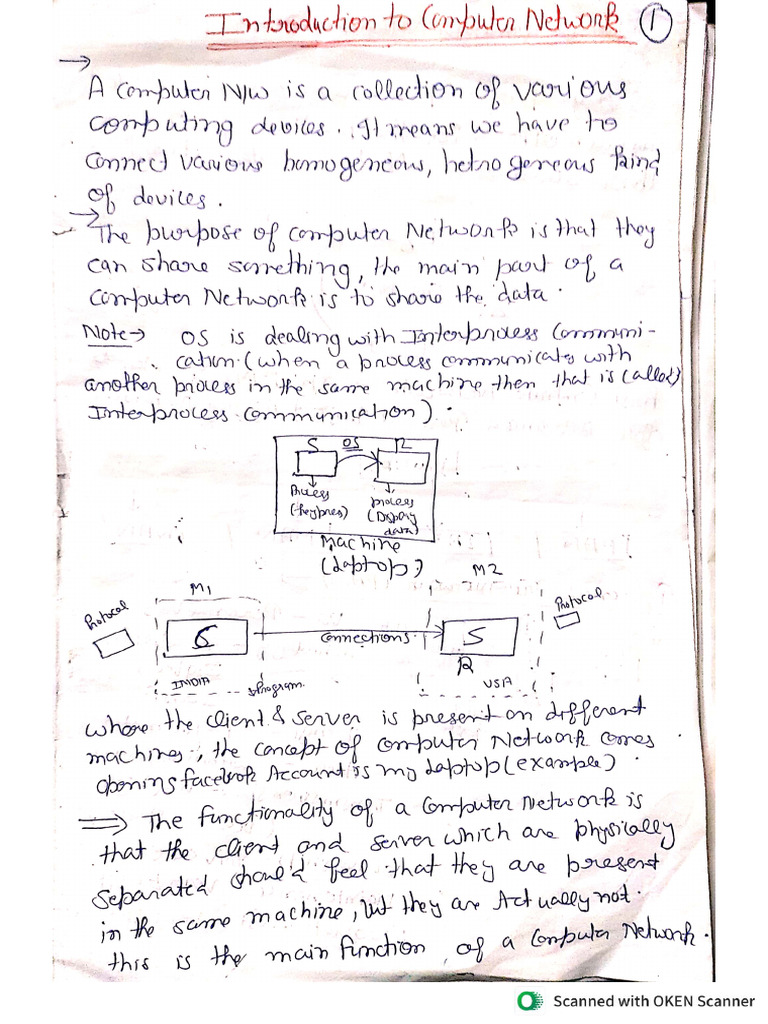 Introduction to Computer Network 1
A computer N/w is a collection of various
computing devices. It means we have to
connect various homogeneous, hetrogeneous kind
of devices.
The purpose of computer Network is that they
can share something, the main part of a
computer Network is to share the data.
Note→ OS is dealing with Interprocess Communi-
cation. (when a process communicates with
another process in the same machine then that is called
Interprocess communication).
S OS R
Process process
(keypres) (Display
data)
Machine
(Laptop)
M1 M2
Protocal Protocal
C Connections S
R
INDIA Program. USA
where the client & server is present on different
machines, the concept of computer Network comes
opening facebook Account is my Laptop (example).
⇒ The functionality of a Computer Network is
that the client and server which are physically
separated should feel that they are present
in the same machine, but they are Actually not.
this is the main function of a Computer Network.
Scanned with OKEN Scanner